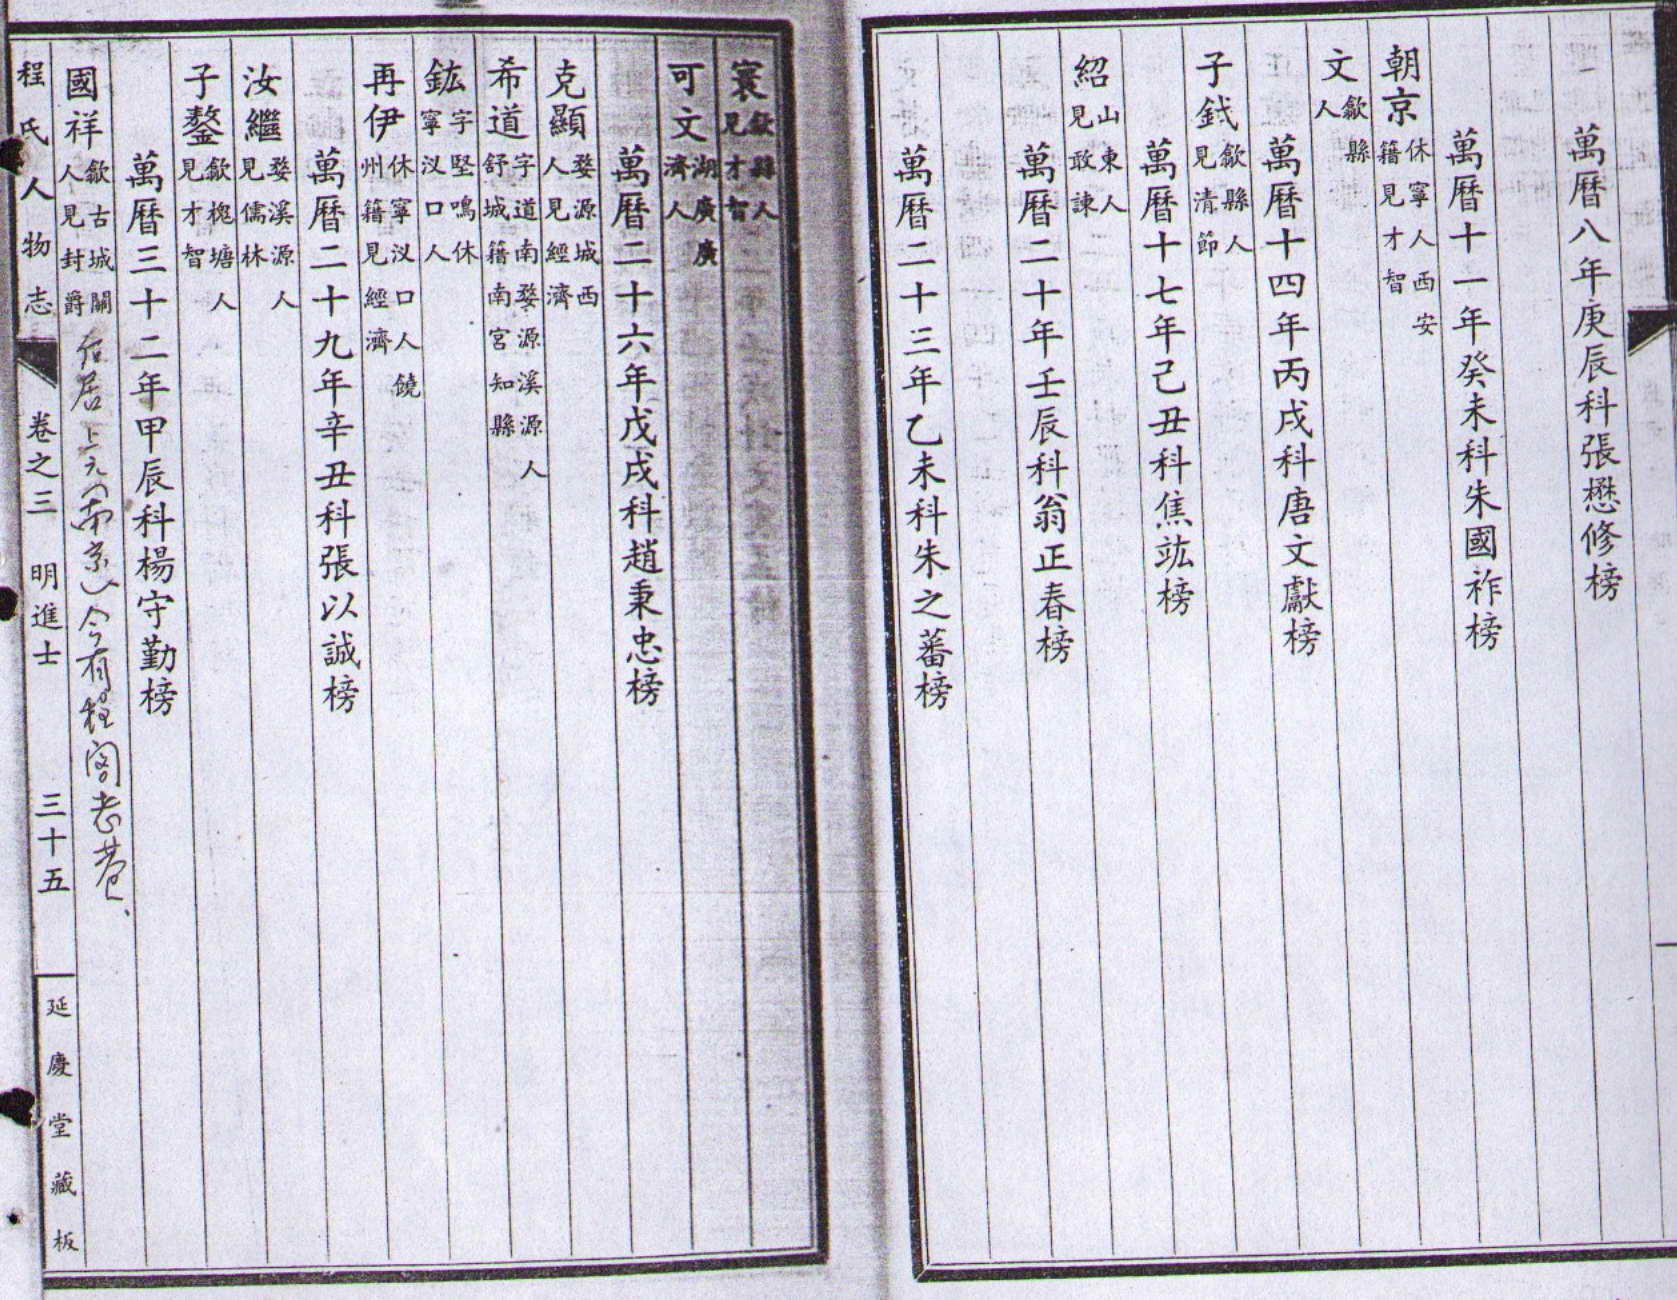 萬曆八年庚辰科張懋修榜
萬曆十一年癸未科朱國祚榜
朝京 休寧人西安
籍見才智
文 歙縣
人
萬曆十四年丙戌科唐文獻榜
子鉞 歙縣人
見清節
萬曆十七年己丑科焦竑榜
紹 山東人
見敢諫
萬曆二十年壬辰科翁正春榜
萬曆二十三年乙未科朱之蕃榜
寰 歙縣人
見才智
可文 湖廣廣
濟人
萬曆二十六年戊戌科趙秉忠榜
克顯 婺源城西
人見經濟
希道 字道南婺源溪源人
舒城籍南宮知縣
鈜 字堅鳴休
寧汊口人
再伊 休寧汊口人饒
州籍見經濟
萬曆二十九年辛丑科張以誠榜
汝繼 婺溪源人
見儒林
子鏊 歙槐塘人
見才智
萬曆三十二年甲辰科楊守勤榜
國祥 歙古城關
人見封爵
后居上元(南京)今有程閣老巷、
程氏人物志 卷之三 明進士 三十五 延慶堂藏板